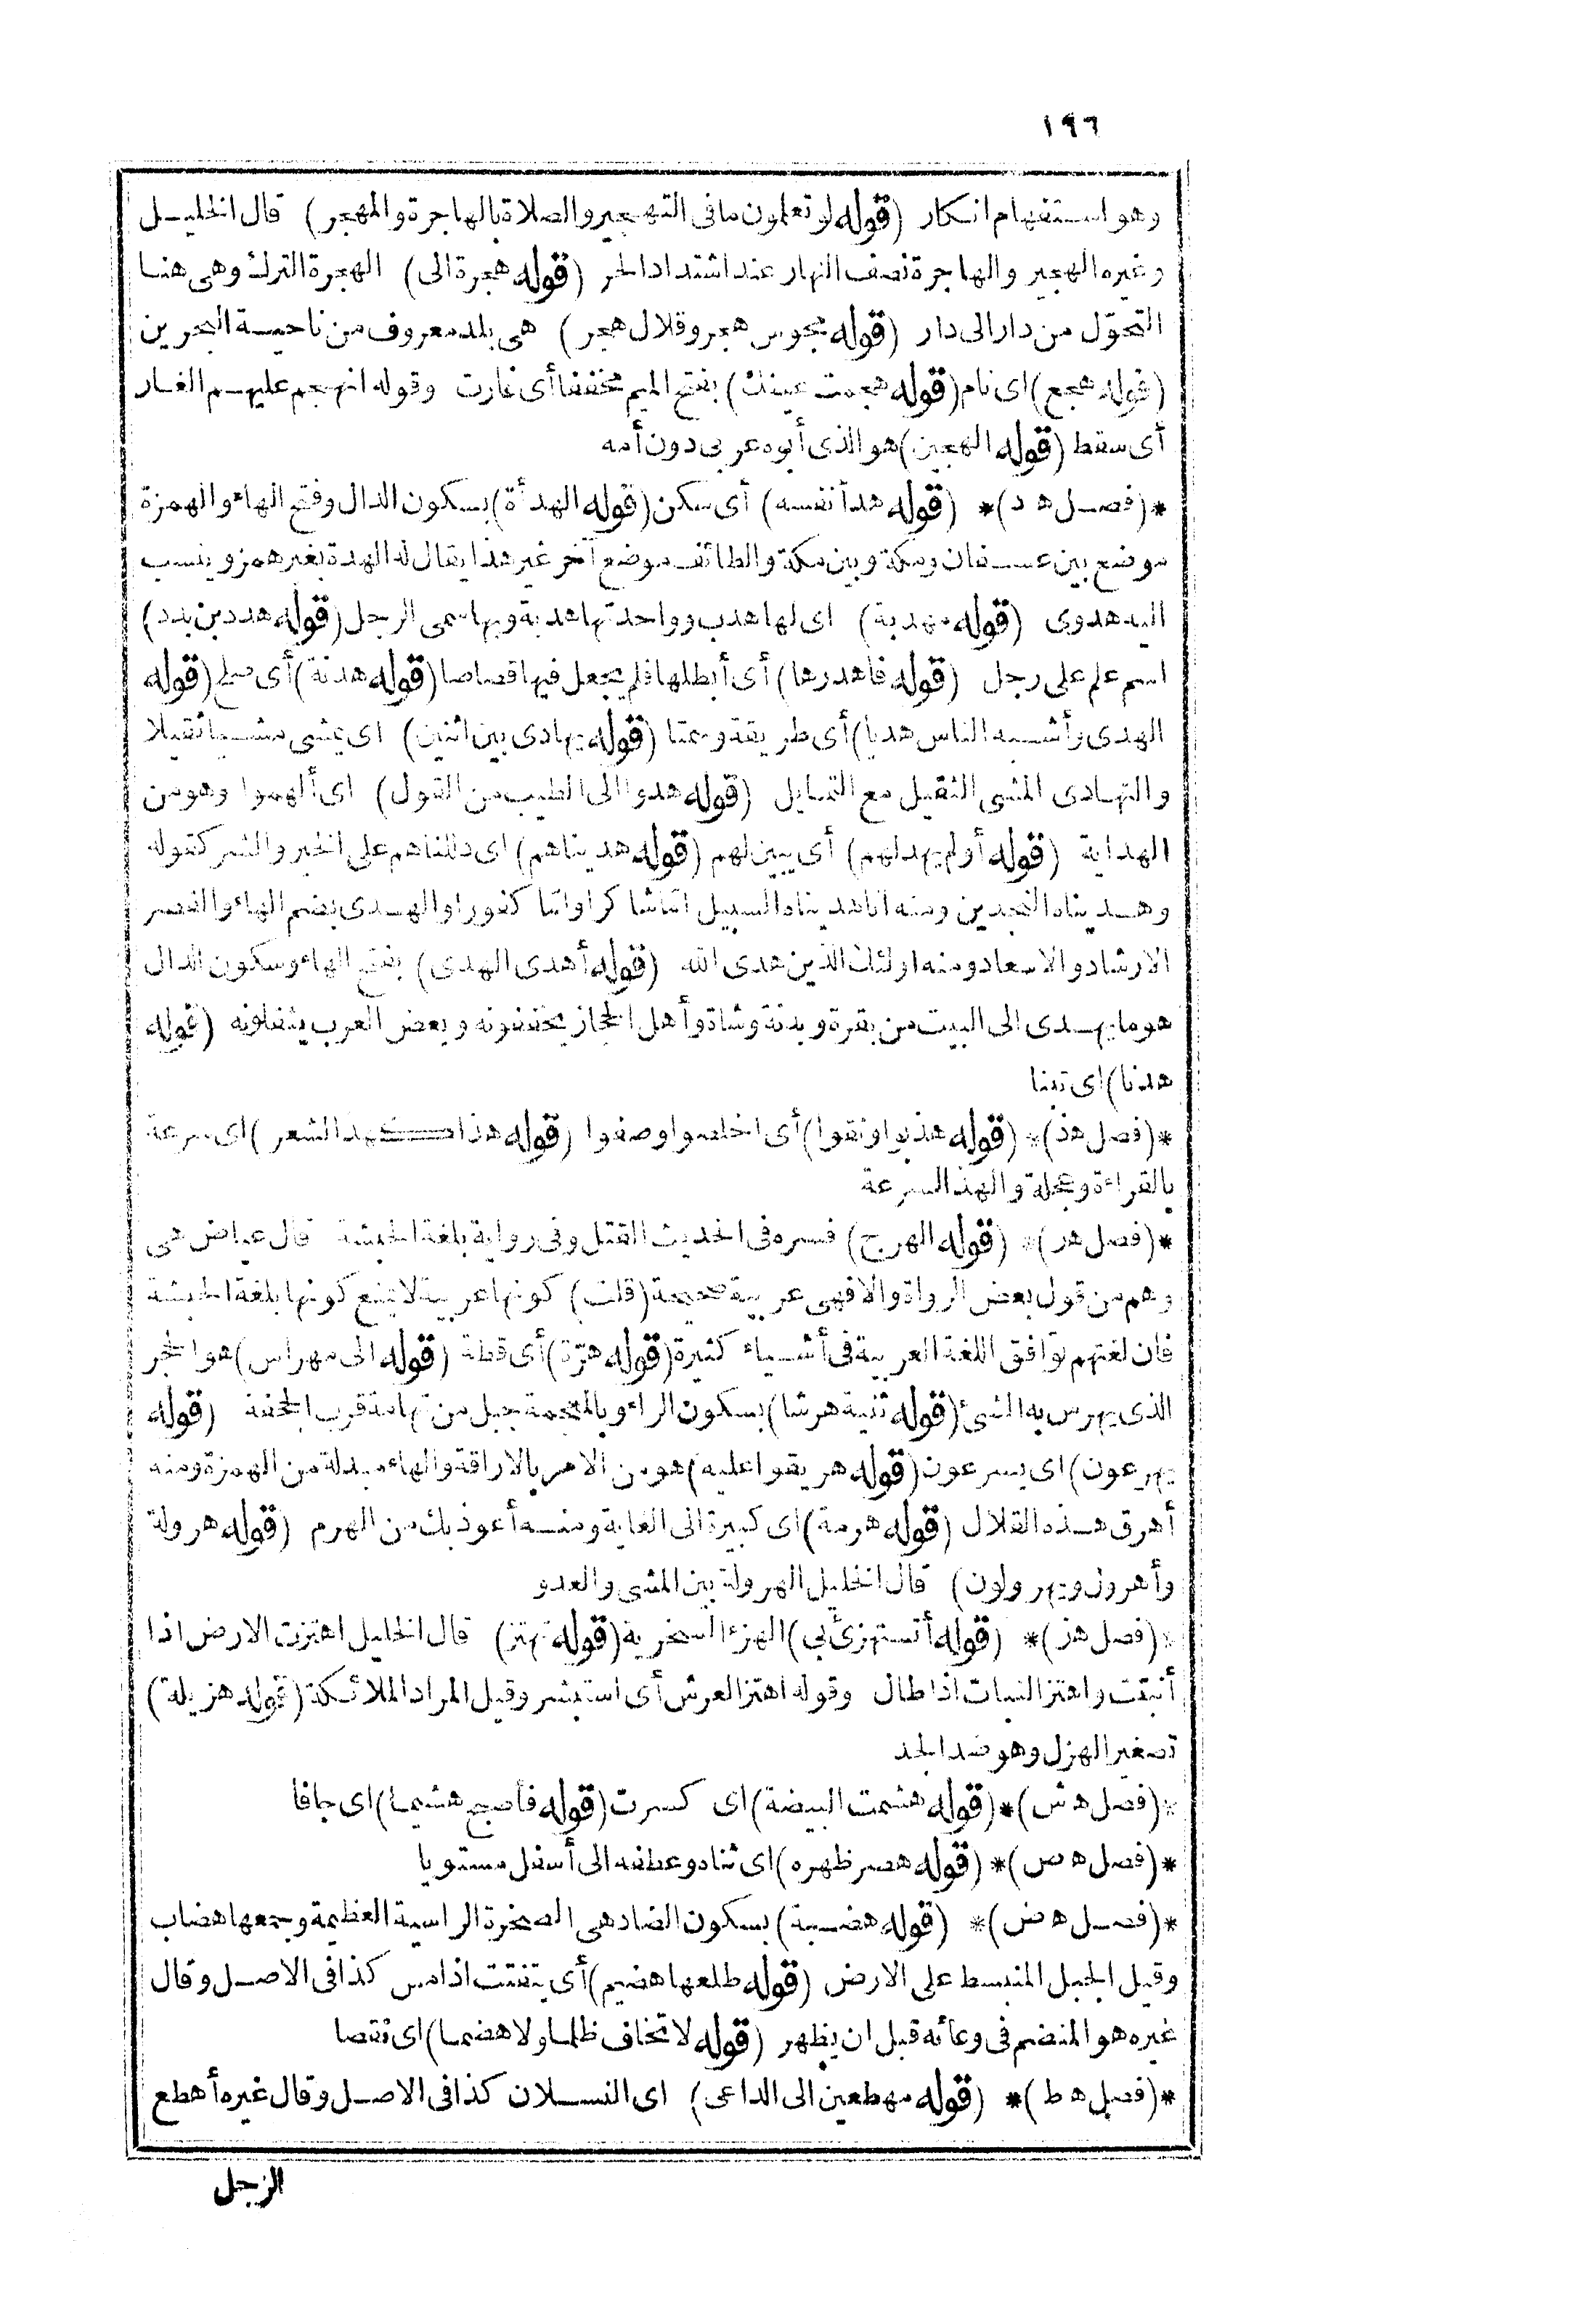 ١٩٦
وهو استفهام انكار (قوله لو تعلمون ما فى التهجير والصلاة بالهاجرة والمهجر) قال الخليل
وغيره الهجير والهاجرة نصف النهار عند اشتداد الحر (قوله هجرة الى) الهجرة الترك وهى هنا
التحوّل من دار الى دار (قوله مجوس هجر وقلال هجر) هى بلد معروف من ناحية البحرين
(قوله هجع) اى نام (قوله هجمت عينك) بفتح الميم مخففا أى غارت وقوله انهجم عليهم الغار
أى سقط (قوله الهجين) هو الذى أبوه عربى دون أمه
*(فصل ه د)* (قوله هدأ نفسه) أى سكن (قوله الهدأة) بسكون الدال وفتح الهاء والهمزة
موضع بين عسفان ومكة وبين مكة والطائف موضع آخر غير هذا يقال له الهدة بغير همز وينسب
اليه هدوى (قوله مهدبة) اى لها هدب وواحدتها هدبة وبها سمى الرجل (قوله هدد بن بدد)
اسم علم على رجل (قوله فاهدرها) أى أبطلها فلم يجعل فيها قصاصا (قوله هدنة) أى صلح (قوله
الهدى وأشبه الناس هديا) أى طريقة وسمتا (قوله يهادى بين اثنين) اى يمشى مشيا ثقيلا
والتهادى المشى الثقيل مع التمايل (قوله هدوا الى الطيب من القول) اى ألهموا وهو من
الهداية (قوله أولم يهد لهم) أى يبين لهم (قوله هديناهم) اى دللناهم على الخير والشر كقوله
وهديناه النجدين ومنه انا هديناه السبيل اتما شاكرا واتما كفورا والهدى بضم الهاء والقصر
الارشاد والاسعاد ومنه اولئك الذين هدى الله (قوله أهدى الهدى) بفتح الهاء وسكون الدال
هو ما يهدى الى البيت من بقرة وبدنة وشاة وأهل الحجاز يخففونه وبعض العرب يثقلونه (قوله
هدنا) اى تبنا
*(فصل هذ)* (قوله هذبوا ونقوا) أى اخلصوا وصفوا (قوله هذا كهذ الشعر) اى سرعة
بالقراءة وعجلة والهذ السرعة
*(فصل هر)* (قوله الهرج) فسره فى الحديث القتل وفى رواية بلغة الحبشة قال عياض هى
وهم من قول بعض الرواة والا فهى عربية صحيحة (قلت) كونها عربية لا يمنع كونها بلغة الحبشة
فان لغتهم توافق اللغة العربية فى أشياء كثيرة (قوله هرّة) أى قطة (قوله الى مهراس) هو الحجر
الذى يهرس به الشئ (قوله ثنية هرشا) بسكون الراء وبالمعجمة جبل من تهامة قرب الجحفة (قوله
يهرعون) اى يسرعون (قوله هريقوا عليه) هو من الامر بالاراقة والهاء مبدلة من الهمزة ومنه
أهرق هذه القلال (قوله هرمة) اى كبيرة الى الغاية ومنه أعوذ بك من الهرم (قوله هرولة
وأهرول ويهرولون) قال الخليل الهرولة بين المشى والعدو
*(فصل هز)* (قوله أتستهزئ بى) الهزء السخرية (قوله تهتز) قال الخليل اهتزت الارض اذا
أنبتت واهتز النبات اذا طال وقوله اهتز العرش أى استبشر وقيل المراد الملائكة (قوله هزيلة)
تصغير الهزل وهو ضد الجد
*(فصل ه ش)* (قوله هشمت البيضة) اى كسرت (قوله فأصبح هشيما) اى جافا
*(فصل ه ص)* (قوله هصر ظهره) اى ثناه وعطفه الى أسفل مستويا
*(فصل ه ض)* (قوله هضبة) بسكون الضاد هى الصخرة الراسية العظيمة وجمعها هضاب
وقيل الجبل المنبسط على الارض (قوله طلعها هضيم) أى يتفتت اذا مس كذا فى الاصل وقال
غيره هو المنضم فى وعائه قبل ان يظهر (قوله لا تخاف ظلما ولا هضما) اى نقصا
*(فصل ه ط)* (قوله مهطعين الى الداعى) اى النسلان كذا فى الاصل وقال غيره أهطع
الرجل